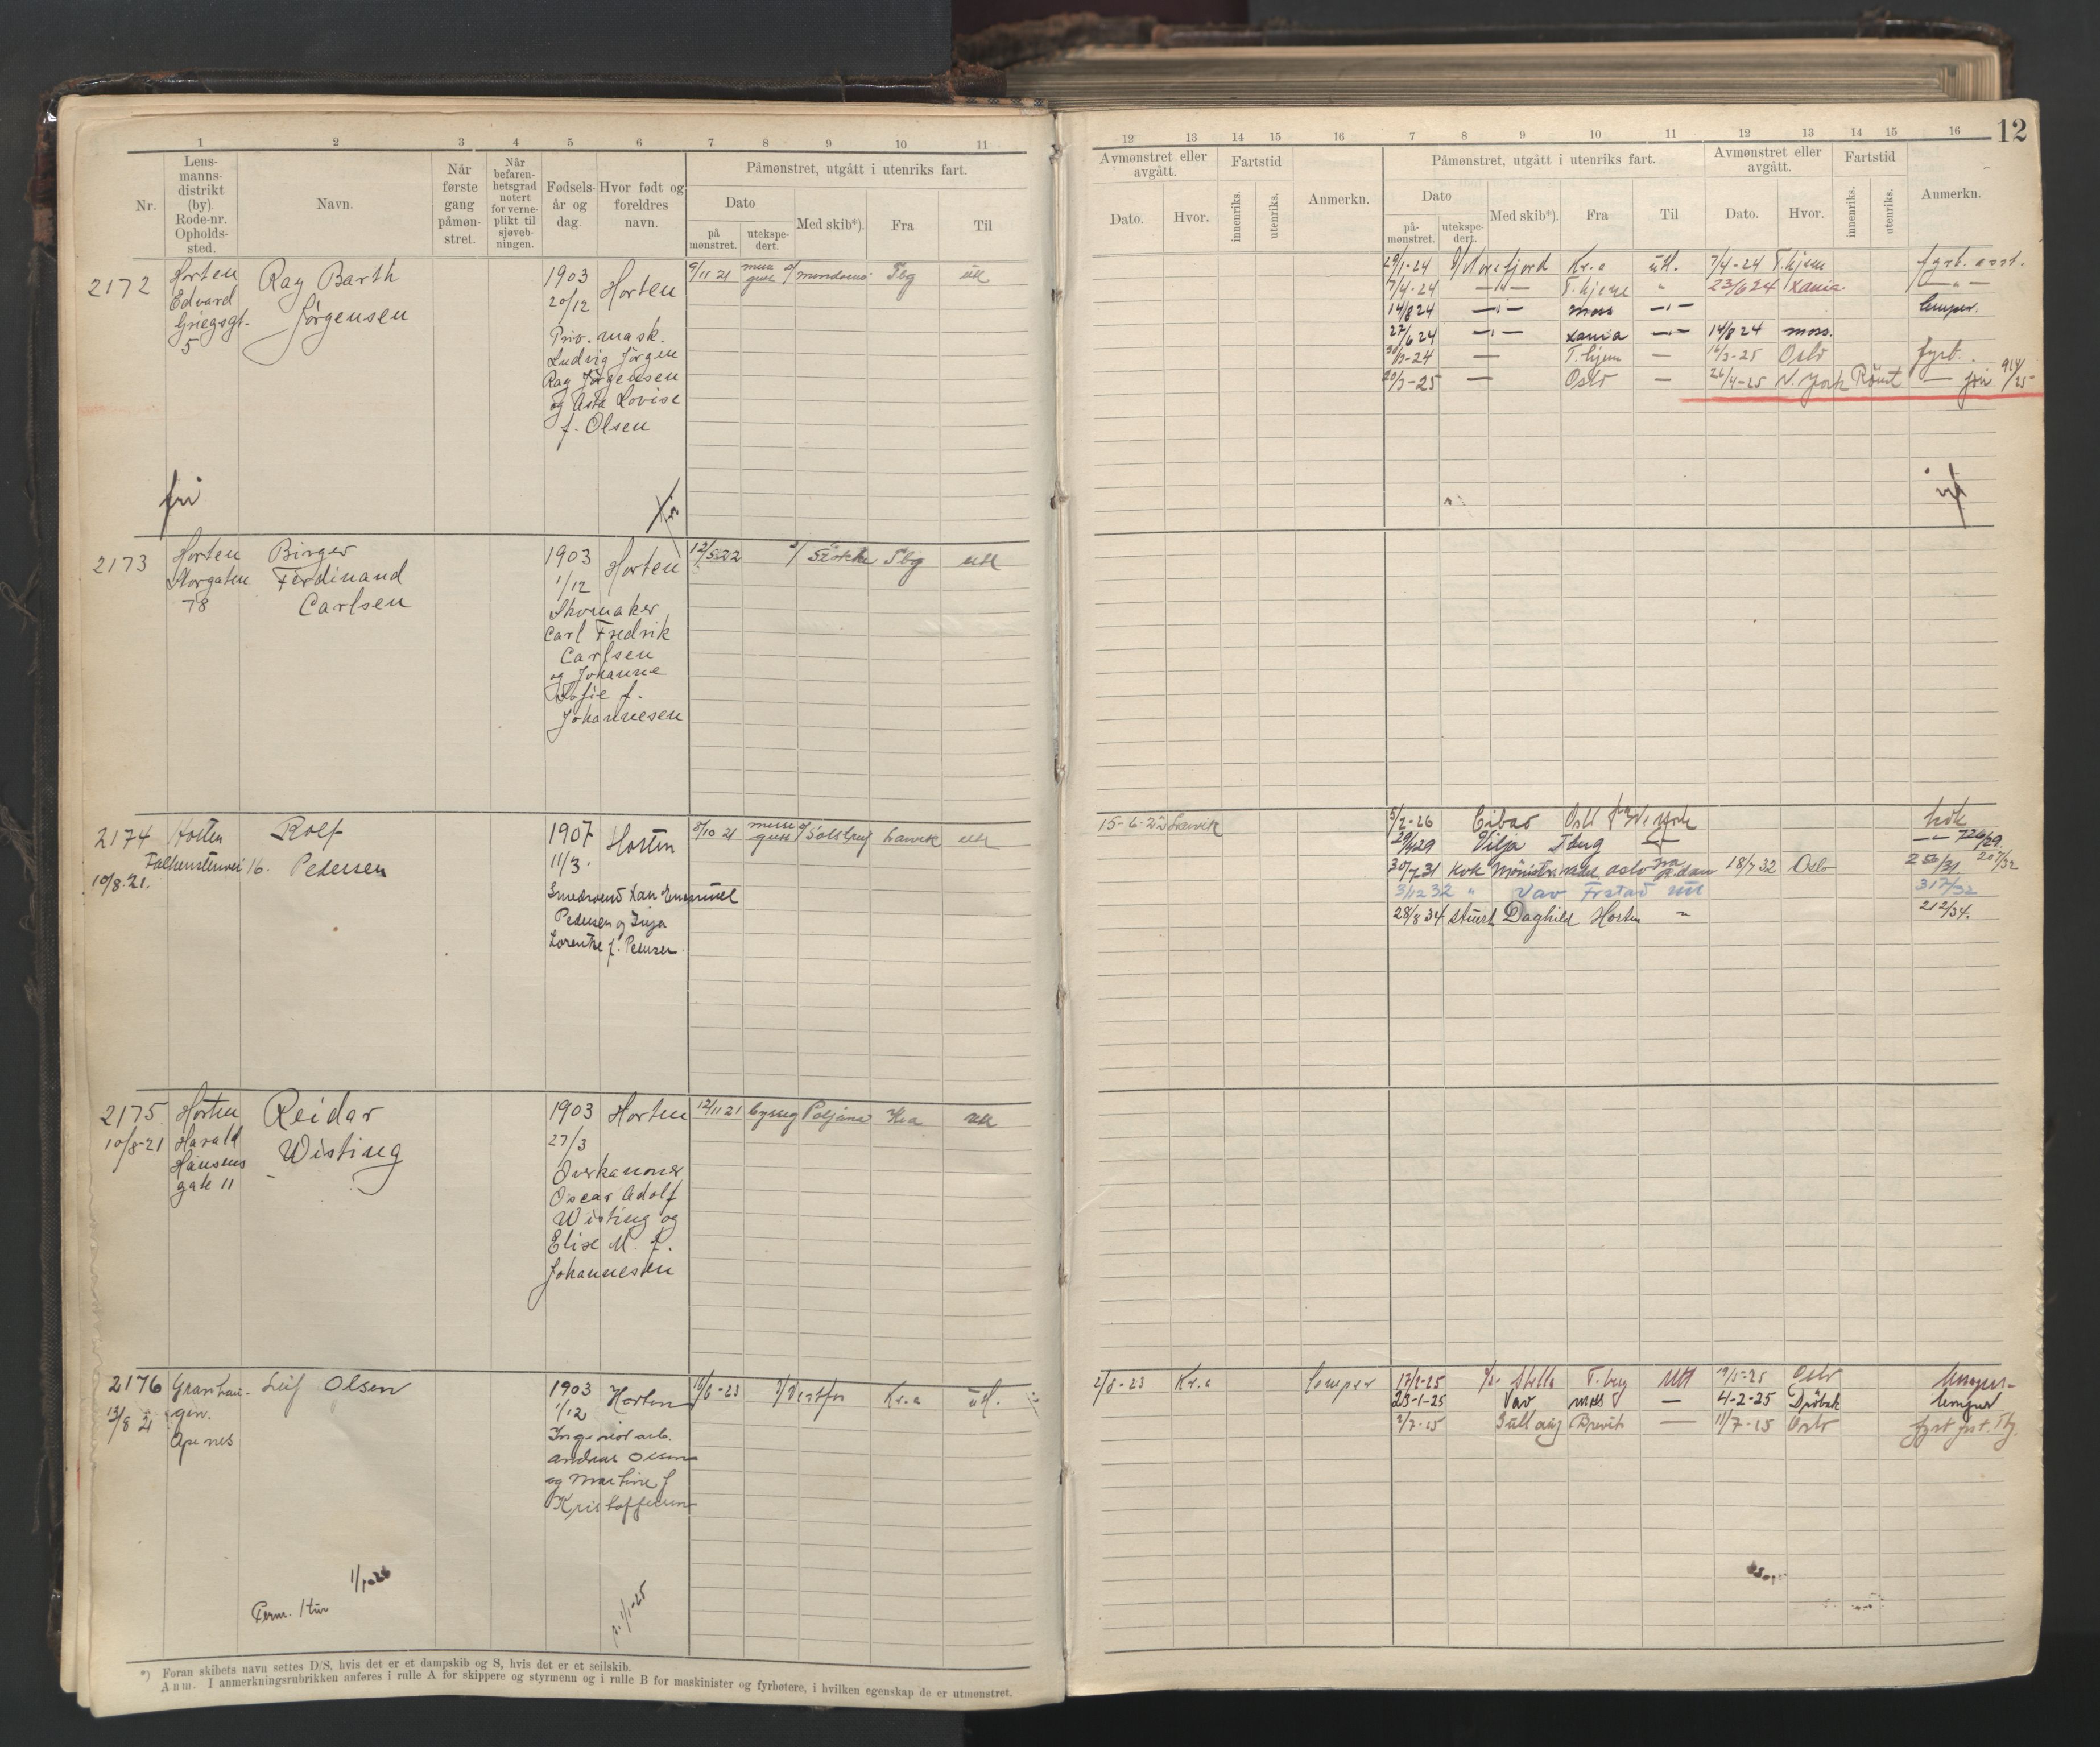 12
1 2 3 4 5 6 7 8 9 10 11
Nr.
Lens-
manns-
distrikt
(by).
Rode-nr.
Opholds-
sted.
Navn.
Når
første
gang
påmøn-
stret.
Når
befaren-
hetsgrad
notert
for verne-
plikt til
sjøveb-
ningen.
Fødsels-
år og
dag.
Hvor født og
foreldres
navn.
Påmønstret, utgått i utenriks fart.
Dato
på
mønstret.
utekspe-
dert.
Med skib*).
Fra
Til
2172
Horten
Edvard
Griegsgt.
5
Ray Barth
Jørgensen
1903
20/12
Horten
Priv. mask.
Ludvig Jørgen
Ray Jørgensen
og Asta Lovise
f. Olsen
9/11 21
Tbg
utl
fri
2173
Horten
Storgaten
78
Birger
Ferdinand
Carlsen
1903
1/12
Horten
Skomaker
Carl Fredrik
Carlsen
og Johanne
Sofie f.
Johannesen
12/5 22 Stokke Tbg utl
2174
10/8-21.
Horten
Falkenstenvei 16.
Rolf
Pedersen
1907
11/3.
Horten
Smedsvend Karl Emanuel
Pedersen og Inga
Lorentse f. Pedersen
8/10 21 Larvik utl
2175
10/8-21
Horten
Harald
Hansens
gate 11
Reidar
Wisting
1903
27/3
Horten
Overkanoner
Oscar Adolf
Wisting og
Elise M. f.
Johannesen
12/11 21 byssg Poljana Kra utl
2176
13/8 21
Granhau-
gen.
Apenes
Leif Olsen
1903
1/12
Horten
Ingeniørarb.
Andreas Olsen
og Martine f
Kristoffersen
Vestfos Kr.a utl.
Perm. 1 tur
*) Foran skibets navn settes D/S, hvis det er et dampskib og S, hvis det er et seilskib.
Anm. I anmerkningsrubrikken anføres i rulle A for skippere og styrmenn og i rulle B for maskinister og fyrbøtere, i hvilken egenskap de er utmønstret.
12 13 14 15 16 7 8 9 10 11 12 13 14 15 16
Avmønstret eller
avgått.
Dato.
Hvor.
Fartstid
innenriks.
utenriks.
Anmerkn.
Påmønstret, utgått i utenriks fart.
Dato
på-
mønstret.
utekspe-
dert.
Med skib*).
Fra
Til
Avmønstret eller
avgått.
Dato.
Hvor.
Fartstid
innenriks.
utenriks.
Anmerkn.
29/1-24 Norefjord Kr.a utl. 7/4-24 T.hjem fyrb. asst.
7/4-24 —"— T.hjem " 23/6 24 Xania —"—
14/8 24 —"— moss —"— lemper.
27/6 24 —"— Xania —"— 14/8 24 moss.
T.hjem — 16/3-25 Oslo fyrb.
20/3-25 — Oslo — 26/4-25 N. York Rømt
15-6-22 Larvik
5/2-26 Cibao Oslo N. York kok
Vilja Tbug
30/7-31 kok 18/7 32 Oslo
3/12 32 " Vav Frstad utl 317/32
28/8 34 stuert Daghild Horten — 212/34.
2/8-23 Kr.a lemper
17/2-25 Stella T.berg utl 19/5-25 Oslo lemper
23-1-25 Vav moss — 4-2-25 Drøbak lemper
2/7-25 Brevik — 11/7-25 Oslo